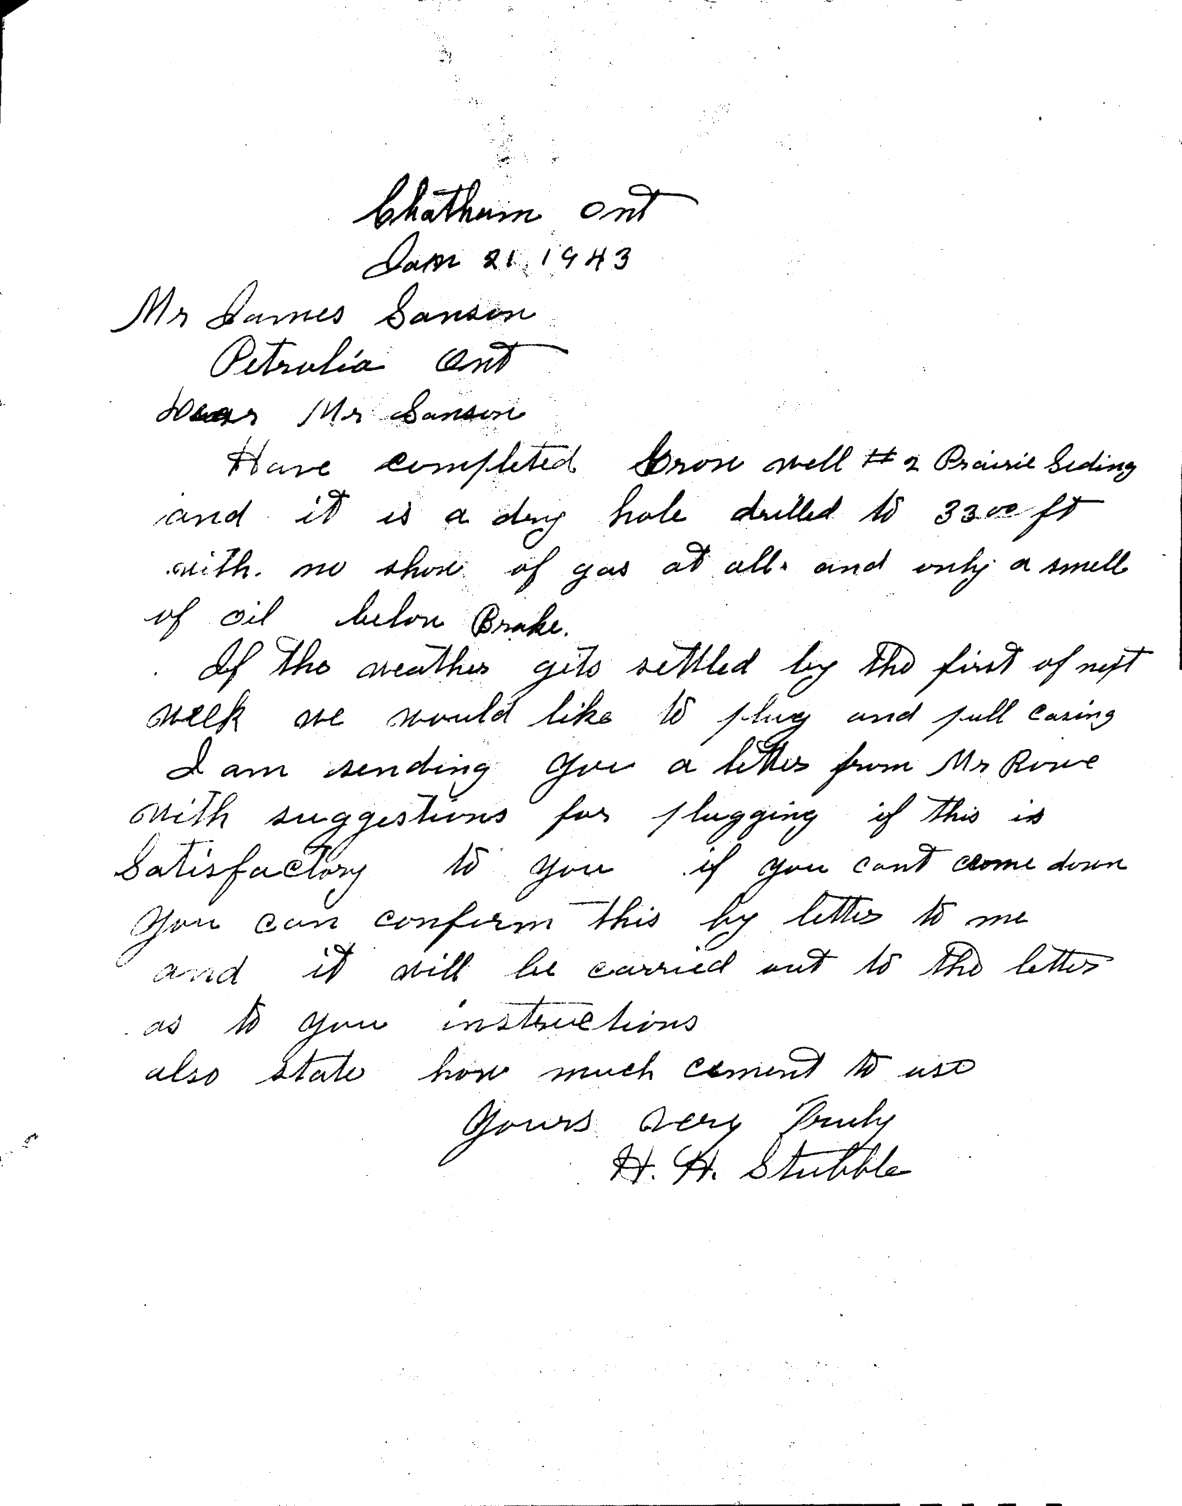 Chatham Ont
Jan 21, 1943
Mr James Sanson
Petrolia Ont
Dear Mr Sanson
Have completed well #2 Prairie Siding
and it is a dry hole drilled to 3300 ft
with no show of gas at all. and only a smell
of oil below Brake.
If the weather gets settled by the first of next
week we would like to plug and pull casing
I am sending you a letter from Mr Rowe
with suggestions for plugging if this is
Satisfactory to you if you cant come down
you can confirm this by letter to me
and it will be carried out to the letter
as to you instructions
also state how much cement to use
Yours Very Truly
H. H. Stubble